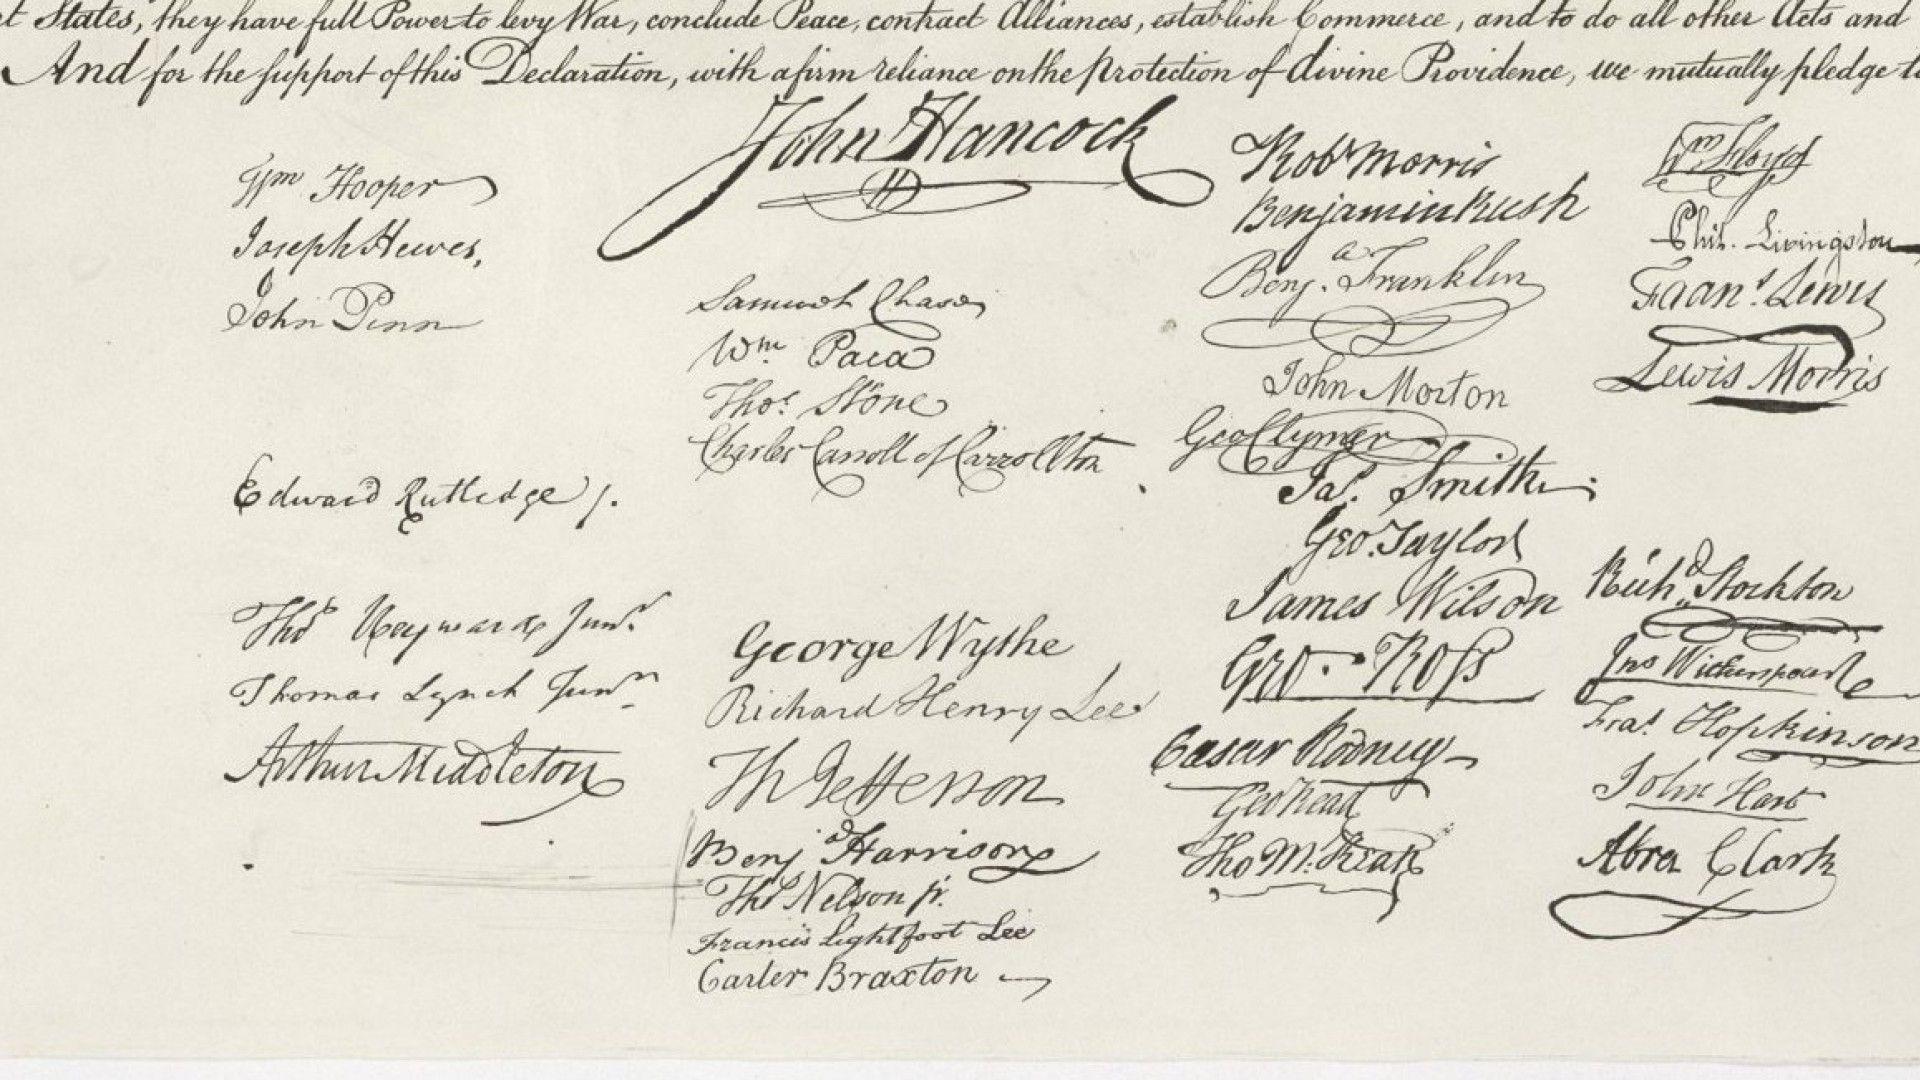 t States, they have full Power to levy War, conclude Peace, contract Alliances, establish Commerce, and to do all other Acts and
And for the support of this Declaration, with a firm reliance on the protection of divine Providence, we mutually pledge to
Wm Hooper
Joseph Hewes,
John Penn
Edward Rutledge /.
Thos Heyward Junr.
Thomas Lynch Junr.
Arthur Middleton
John Hancock
Samuel Chase
Wm. Paca
Thos. Stone
Charles Carroll of Carrollton
George Wythe
Richard Henry Lee
Th Jefferson
Benja Harrison
Thos Nelson jr.
Francis Lightfoot Lee
Carter Braxton
Robt Morris
Benjamin Rush
Benja. Franklin
John Morton
Geo Clymer
Jas. Smith
Geo. Taylor
James Wilson
Geo. Ross
Caesar Rodney
Geo Read
Tho M:Kean
Wm Floyd
Phil. Livingston
Frans. Lewis
Lewis Morris
Richd. Stockton
Jno Witherspoon
Fras. Hopkinson
John Hart
Abra Clark